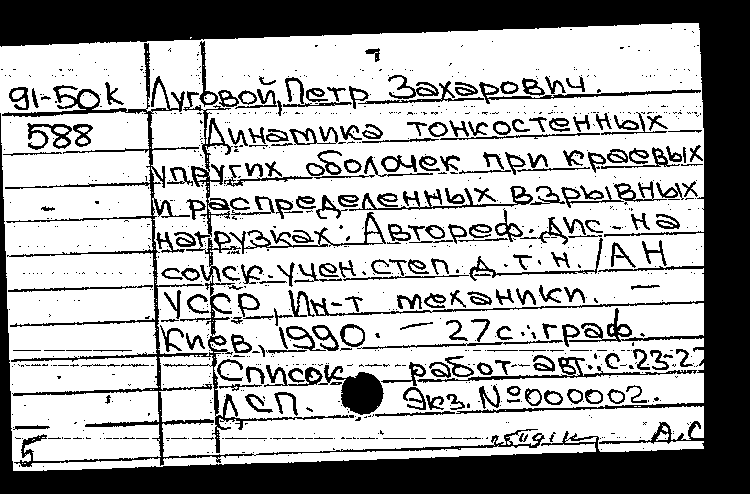 91-50К Луговой, Петр Захарович.
588 Динамика тонкостенных
упругих оболочек при краевых
и распределенных взрывных
нагрузках: Автореф. дис. на
соиск. учен. степ. д.т.н. /АН
УССР, Ин-т механики. —
Киев, 1990. — 27с.: граф.
Список работ авт.: с.23-27
ДСП. Экз. №000002.
5 А.С